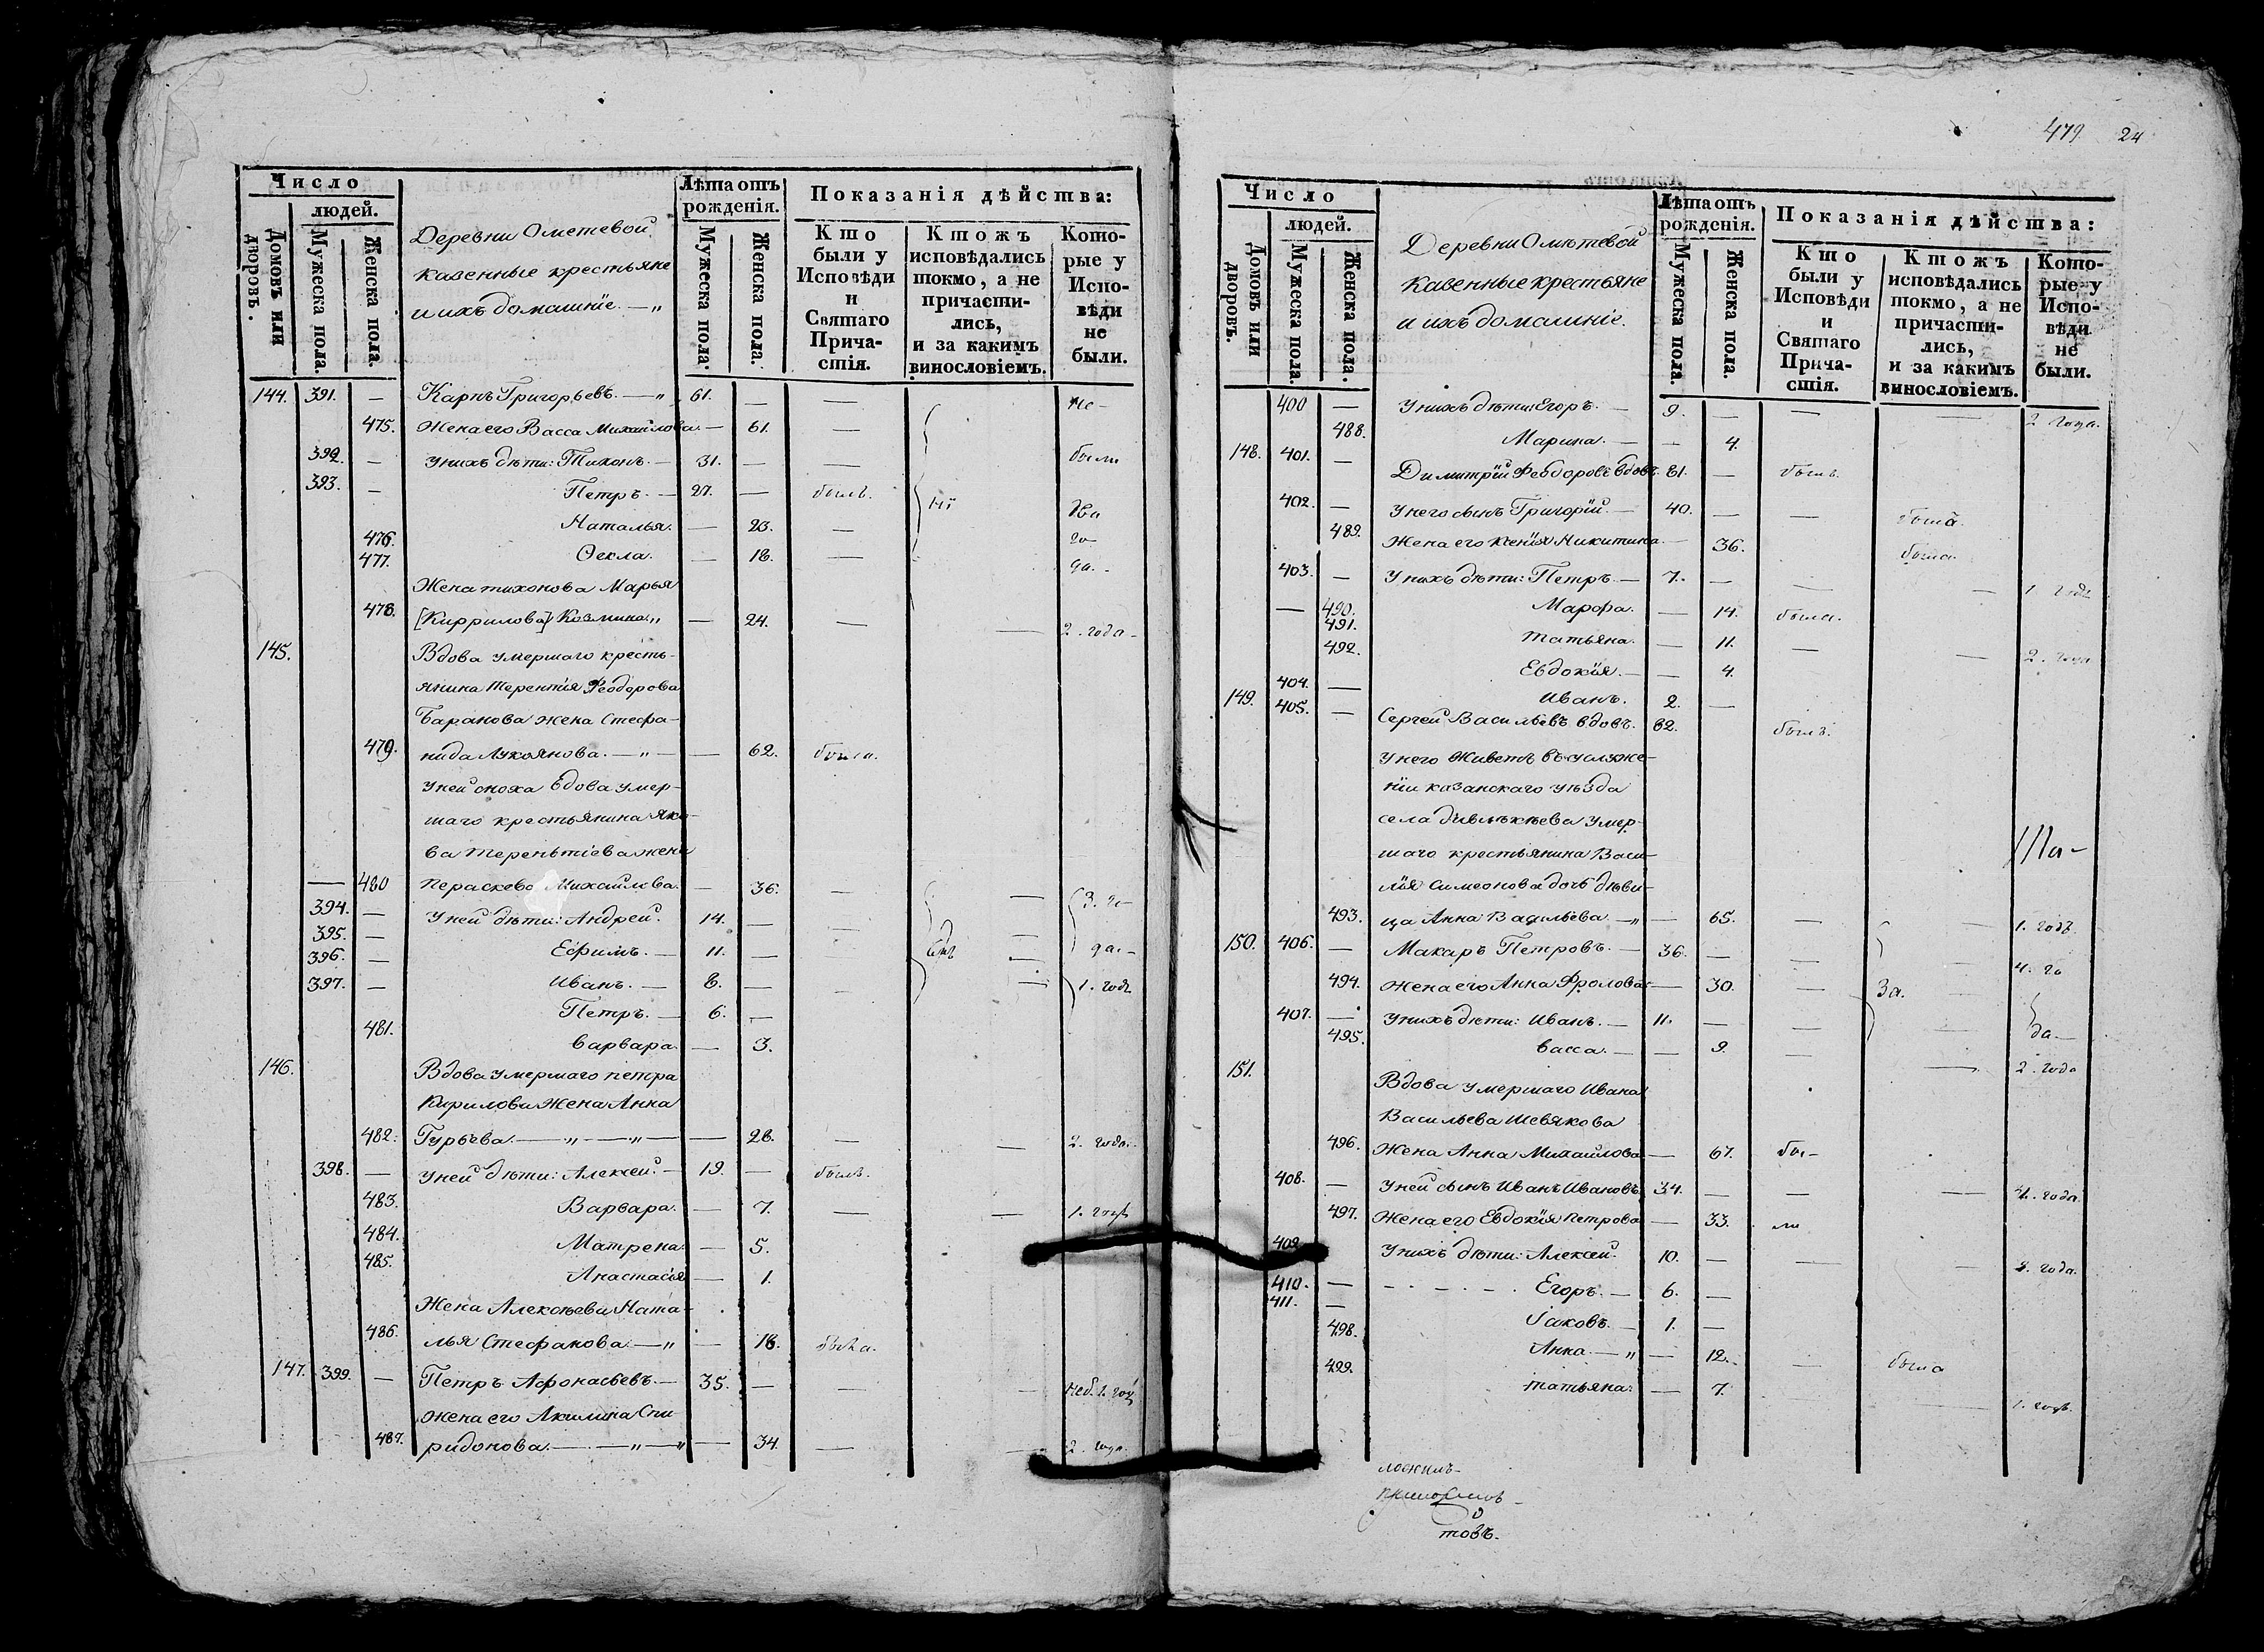 479 24
Число
людей.
Домовъ или дворовъ.
Мужеска пола.
Женска пола.
Деревни Ометевой
казенные крестьяне
и ихъ домашнїе. — „
Лѣта отъ рожденія.
Мужеска пола.
Женска пола.
Показанія дѣйства:
Кто были у Исповѣди и Святаго Причастія.
Ктожъ исповѣдались токмо, а не причастились, и за какимъ винословіемъ.
Которые у Исповѣди не были.
144. 391. — Карпъ Григорьевъ. — „ 61. — — не –
475. Жена его Васса Михайлова. — 61. —
392. — У нихъ дѣти: Тихонъ. — 31. — — были
393. — Петръ. — 27. — былъ.
476. Наталья. — 23. — два
477. Ѳекла. — 18. — го
да. –
Жена тихонова Марья
478. [Киррилова] Козмина „ — 24. — — 2. года –
145. Вдова умершаго кресть-
янина Терентїя Ѳеодорова
Баранова жена Стефа-
479. нида Лукоянова. — „ — — 62. была.
У ней сноха вдова умер-
шаго крестьянина Яко-
ва Терентїева жена
— 480 Пераскева Михайлова. — 36. — — 3. го
394. — У ней дѣти: Андрей. 14. — — —
395. — Ефимъ. — 11. — — — да. –
396. — Иванъ. — 8. — — — 1. годъ
397. — Петръ. — 6. —
481. Варвара. — 3.
146. Вдова умершаго петра
Кирилова жена Анна
482. Гурьева. — „ — „ — — 28. — — 2. года.
398. — У ней дѣти: Алексѣй. — 19. — былъ.
483. Варвара. — 7. — — 1. годъ
484. Матрена. — 5.
485. Анастасїя — 1.
Жена Алексѣева Ната-
486. лья Стефанова. — „ — 18. была.
147. 399. — Петръ Афонасьевъ. — 35. — — — неб. 2. год
Жена его Акилина Спи
487. ридонова. — — „ — „ — 34. — — 2. года.
Число
людей.
Домовъ или дворовъ.
Мужеска пола.
Женска пола.
Деревни Ометевой
Казенные крестьяне
и ихъ домашнїе.
Лѣта отъ рожденія.
Мужеска пола.
Женска пола.
Показанія дѣйства:
Кто были у Исповѣди и Святаго Причастія.
Ктожъ исповѣдались токмо, а не причастились, и за какимъ винословіемъ.
Которые у Исповѣди не были.
400 — У нихъ дѣти: Егоръ. — 9. — — — 2 года.
488. Марина. — — 4.
148. 401. — Димитрїй Ѳеодоровъ вдовъ. 61. — былъ.
402. — У него сынъ Григорїй. — 40. — — была.
489. Жена его Ксенїя Никитина. — 36. была.
403. — У нихъ дѣти: Петръ. — 7. — — — 1. годъ
— 490. Марфа. — 14. была.
491. Татьяна. — 11. — — 2. года
492. Евдокїя. — — 4.
404. — Иванъ. 2. —
149. 405. — Сергей Васильевъ вдовъ. 62. былъ.
У него живетъ въ услуже-
нїи казанскаго уѣзда
села дївликѣева умер-
шаго крестьянина Васи-
лїя Симеонова дочь дѣви-
493. ца Анна Васильева. — „ — 65. — — 1. годъ.
150. 406. — Макаръ Петровъ. — 36. — — — 4. го
494. Жена его Анна Фролова. — 30. — За. —
407. — У нихъ дѣти: Иванъ. — 11. — — да. —
495. Васса. — — 9. — — 2. года
151. Вдова умершаго Ивана
Васильева Шевякова
496. Жена Анна Михаилова. — 67. бы –
408. — У ней сынъ Иванъ Ивановъ. 34. — — — 4. года.
497. Жена его Евдокїя Петрова — 33. ли
409. У нихъ дѣти: Алексей. 10. — — — года.
410. — Егоръ. — 6. —
411. — Їаковъ. — 1. —
498. Анна. — „ — 12. — — была
499. татьяна. — 7. — 1. годъ.
товъ.